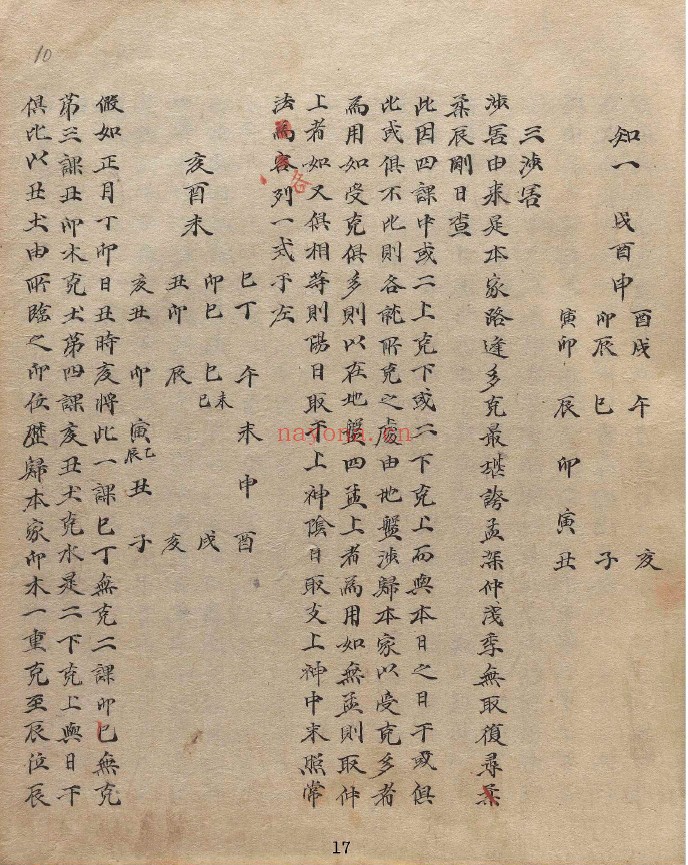 10
知一 戌酉申
酉戌 午 亥
卯辰 巳 子
寅卯 辰 卯 寅 丑
三涉害
涉害由来是本家路逢多克最堪誇孟深仲浅季無取復尋柔
柔辰剛日查
此因四課中或二上克下或二下克上而與本日之日干或俱
比或俱不比則各就所克之處由地盤涉歸本家以受克多者
為用如受克俱多則以在地盤四孟上者為用如無孟則取仲
上者如又俱相等則陽日取干上神陰日取支上神中末照常
法為容列一式于左
各
亥酉未
巳丁 午 未 申 酉
卯巳 巳 未己 戌
丑卯 辰 亥
亥丑 卯 寅 乙辰 丑 子
假如正月丁卯日丑時亥將此一課巳丁無克二課卯巳無克
第三課丑卯木克土第四課亥丑土克水是二下克上與日干
俱比以丑土由所臨之卯位歷歸本家卯木一重克至辰位辰
nayona.cn
17